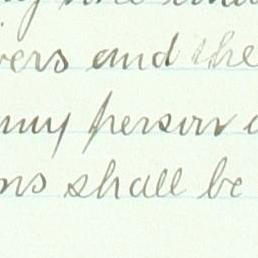 vers and the
any person
ns shall be